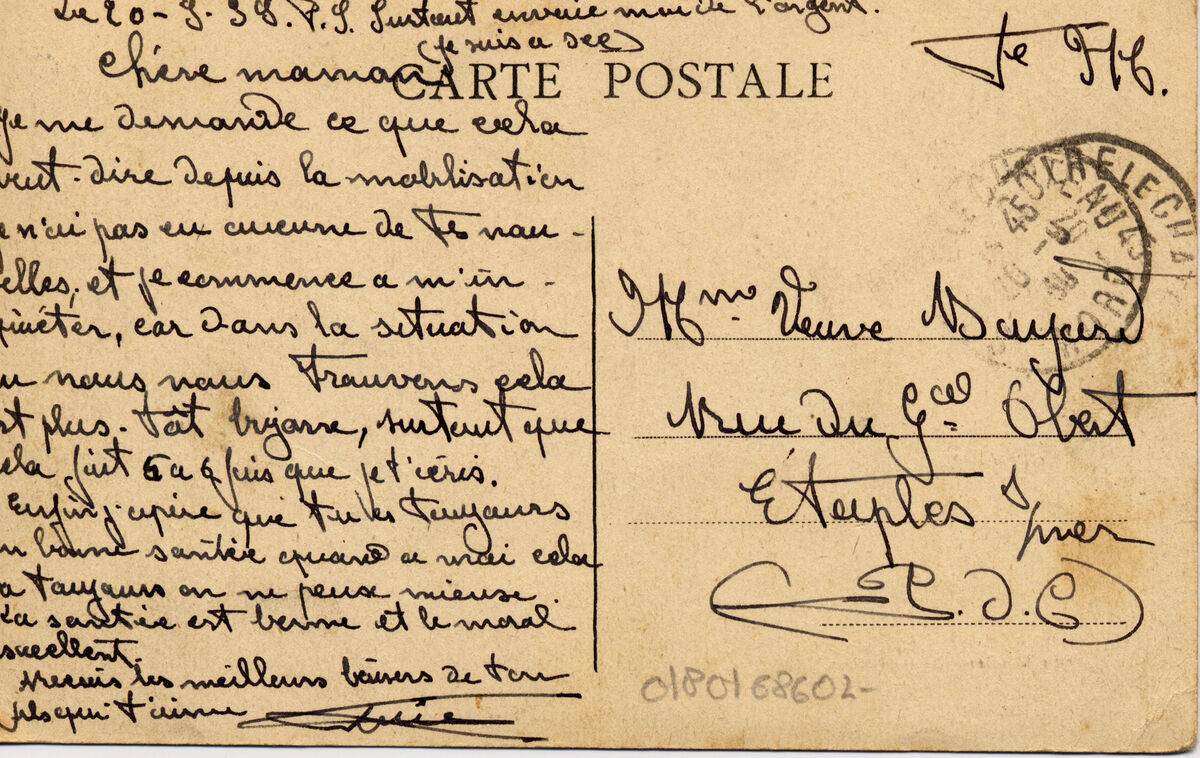 P.S. Surtout envoie moi de l'argent.
(je suis a sec)
chère maman
CARTE POSTALE
Je me demande ce que cela
veut-dire depuis la mobilisation
je n'ai pas eu aucune de tes nou-
elles, et je commence a m'in-
quiéter, car dans la situation
ou nous nous trouvons cela
est plus-tôt bizarre, surtout que
cela fait 5 a 6 fois que je t'écris.
Enfin j'espère que tu es toujours
en bonne santée quand a moi cela
va toujours on ne peux mieuse.
La santée est bonne et le moral
excellent.
Reçois les meilleurs baisers de ton
fils qui t'aime
F M.
Mme Veuve Bayard
Rue du Gal Obert
Étaples s/mer
(P.d.C)
0180168602-